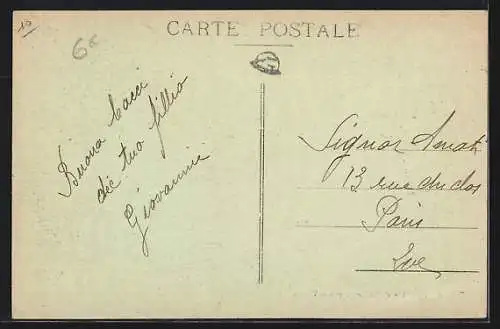 10
6€
CARTE POSTALE
Buona bacci
dèè tuo fillio
Giovannini
Signor Amati
13 rue du clos
Paris
XXe